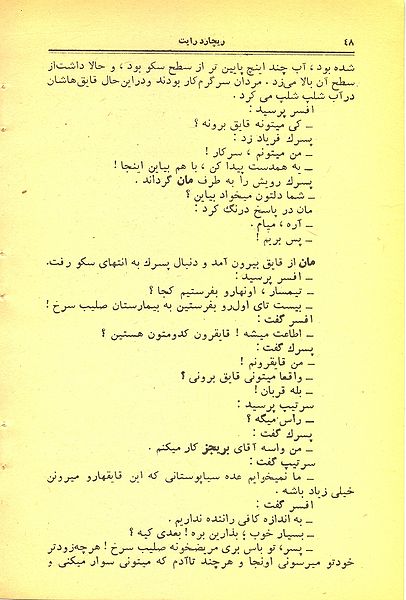 ۴۸
ریچارد رایت
شده بود ، آب چند اینچ پایین تر از سطح سکو بود ، و حالا داشت‌از
سطح آن بالا می‌زد . مردان سرگرم‌کار بودند ودراین‌حال قایق‌هاشان
درآب شلپ شلپ می کرد .
افسر پرسید :
ــ کی میتونه قایق برونه ؟
پسرك فریاد زد :
ــ من میتونم ، سرکار !
ــ یه همدست پیدا کن ، با هم بیاین اینجا !
پسرك رویش را به طرف مان گرداند .
ــ شما دلتون میخواد بیاین ؟
مان در پاسخ درنگ کرد :
ــ آره ، میام .
ــ پس بریم !
مان از قایق بیرون آمد و دنبال پسرك به انتهای سکو رفت.
ــ افسر پرسید :
ــ تیمسار ، اونهارو بفرستیم کجا ؟
ــ بیست تای اول‌رو بفرستین به بیمارستان صلیب سرخ !
افسر گفت :
ــ اطاعت میشه ! قایقرون کدومتون هستین ؟
پسرك گفت :
ــ من قایقرونم !
ــ واقعا میتونی قایق برونی ؟
ــ بله قربان!
سرتیپ پرسید :
ــ راس میگه ؟
پسرك گفت :
ــ من واسه آقای بریجز کار میکنم .
سرتیپ گفت :
ــ ما نمیخوایم عده سیاپوستانی که این قایقهارو میرونن
خیلی زیاد باشه .
افسر گفت :
ــ به اندازه کافی راننده نداریم .
ــ بسیار خوب ؛ بذارین بره ! بعدی کیه ؟
ــ پسر، تو باس بری مریضخونه صلیب سرخ ! هرچه‌زودتر
خودتو میرسونی اونجا و هرچند تاآدم که میتونی سوار میکنی و